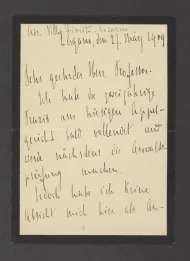 Lugano, den 27. März 1909
Sehr geehrter Herr Professor.
Ich habe die zweijährige
Praxis am hiesigen Appel-
gericht bald vollendet und
werde nächstens die Anwalts-
prüfung machen.
Jedoch habe ich keine
Absicht mich hier als An-